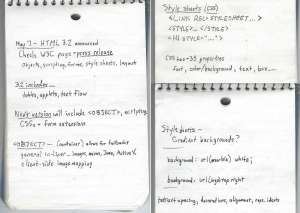 May 7 - HTML 3.2 announced
Check W3C page - press release
objects, scripting, forms, style sheets, layout
3.2 includes
tables, applets, text flow
Next version will include <OBJECT>, scripting
CSS, + form extensions
<OBJECT> - (container) allows for fallbacks
general in-liner... image, movie, Java, ActiveX
client-side image mapping
Style sheets (CSS)
<LINK REL=STYLESHEET...>
<STYLE>...</STYLE>
<H1 STYLE="...">
CSS has ~35 properties
font, color/background, text, box...
Style sheets -
Gradient backgrounds?
background: url(marble) white;
background: url(img) top right
text: letterspacing, decorations, alignment, caps, indents